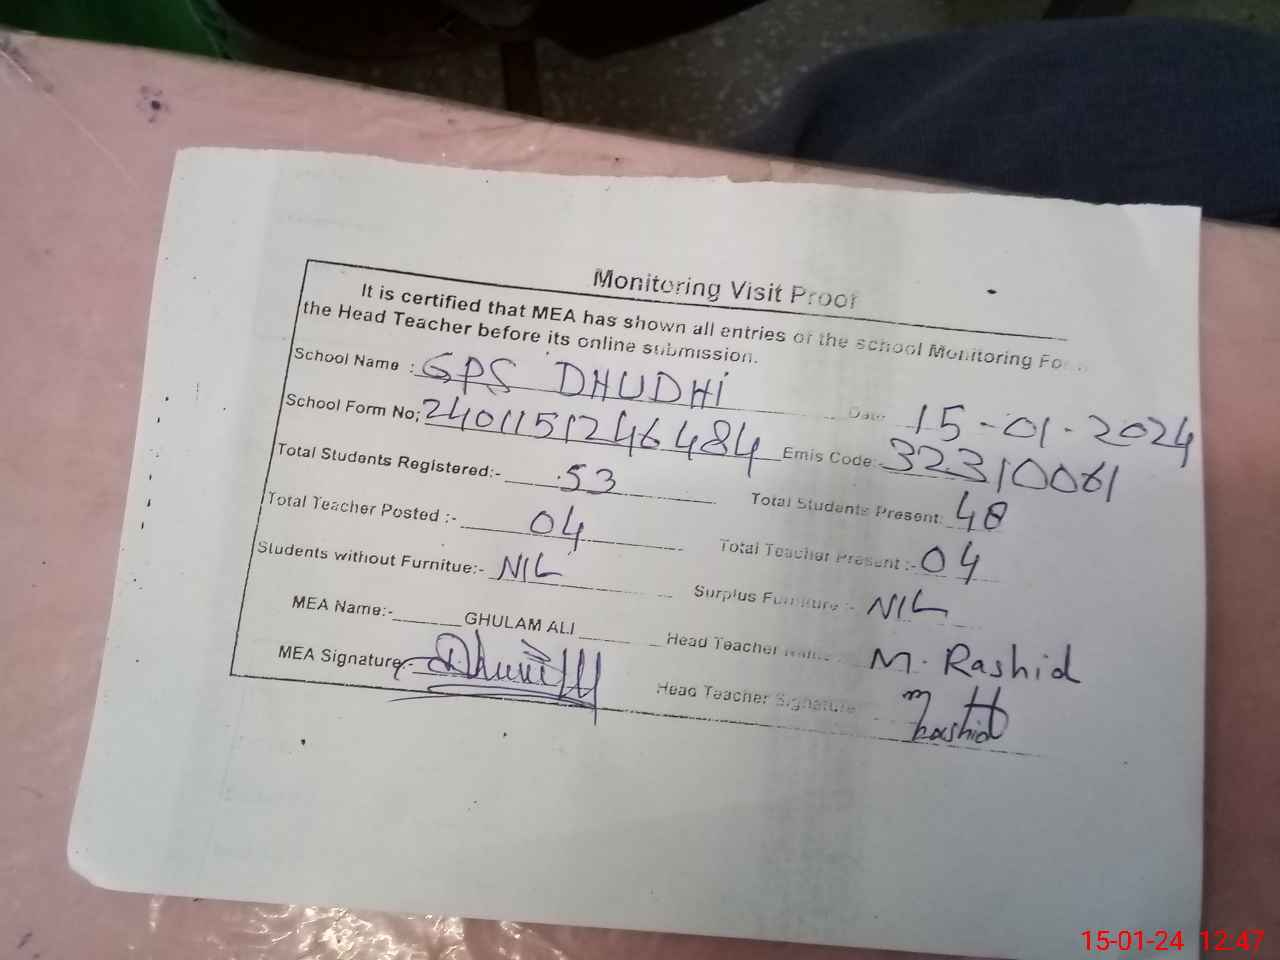 Monitoring Visit Proof
It is certified that MEA has shown all entries of the school Monitoring Fo
the Head Teacher before its online submission.
School Name : GPS DHUDHI Date 15-01-2024
School Form No; 240115124 6484 Emis Code:- 32310061
Total Students Registered:- 53 Total Students Present: 48
Total Teacher Posted :- 04 Total Teacher Present :- 04
Students without Furnitue:- NIL Surplus Furniture :- NIL
MEA Name:- GHULAM ALI Head Teacher Name M. Rashid
MEA Signature:- Head Teacher Signature M Rashid
15-01-24 12:47